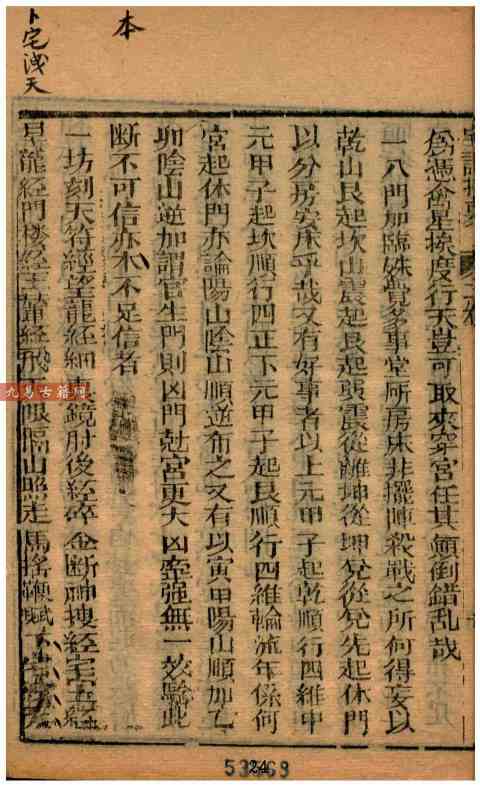 為憑禽星掠度行天豈可取來穿宮任其顛倒錯乱哉
一八門加臨殊覺多事堂所房床非擺陣殺戰之所何得妄以
乾山艮起坎山震起艮起巽震從離坤從坤兌從兌先起休門
以分房安床乎哉又有好事者以上元甲子起乾順行四維中
元甲子起坎順行四正下元甲子起艮順行四維輪流年係何
宮起休門亦論陽山陰山順逆布之又有以寅甲陽山順加
卯陰山逆加謂宮生門則凶門尅宮更大凶牽強無一效驗此
断不可信亦木不足信者
一坊刻天符經望龍經細 鏡肘後經碎金断 搜經宅
龍經門樓經 經飛 眼隔山照走馬搖鞭賦
本
卜宅洩天
九易古籍网
24
53 63